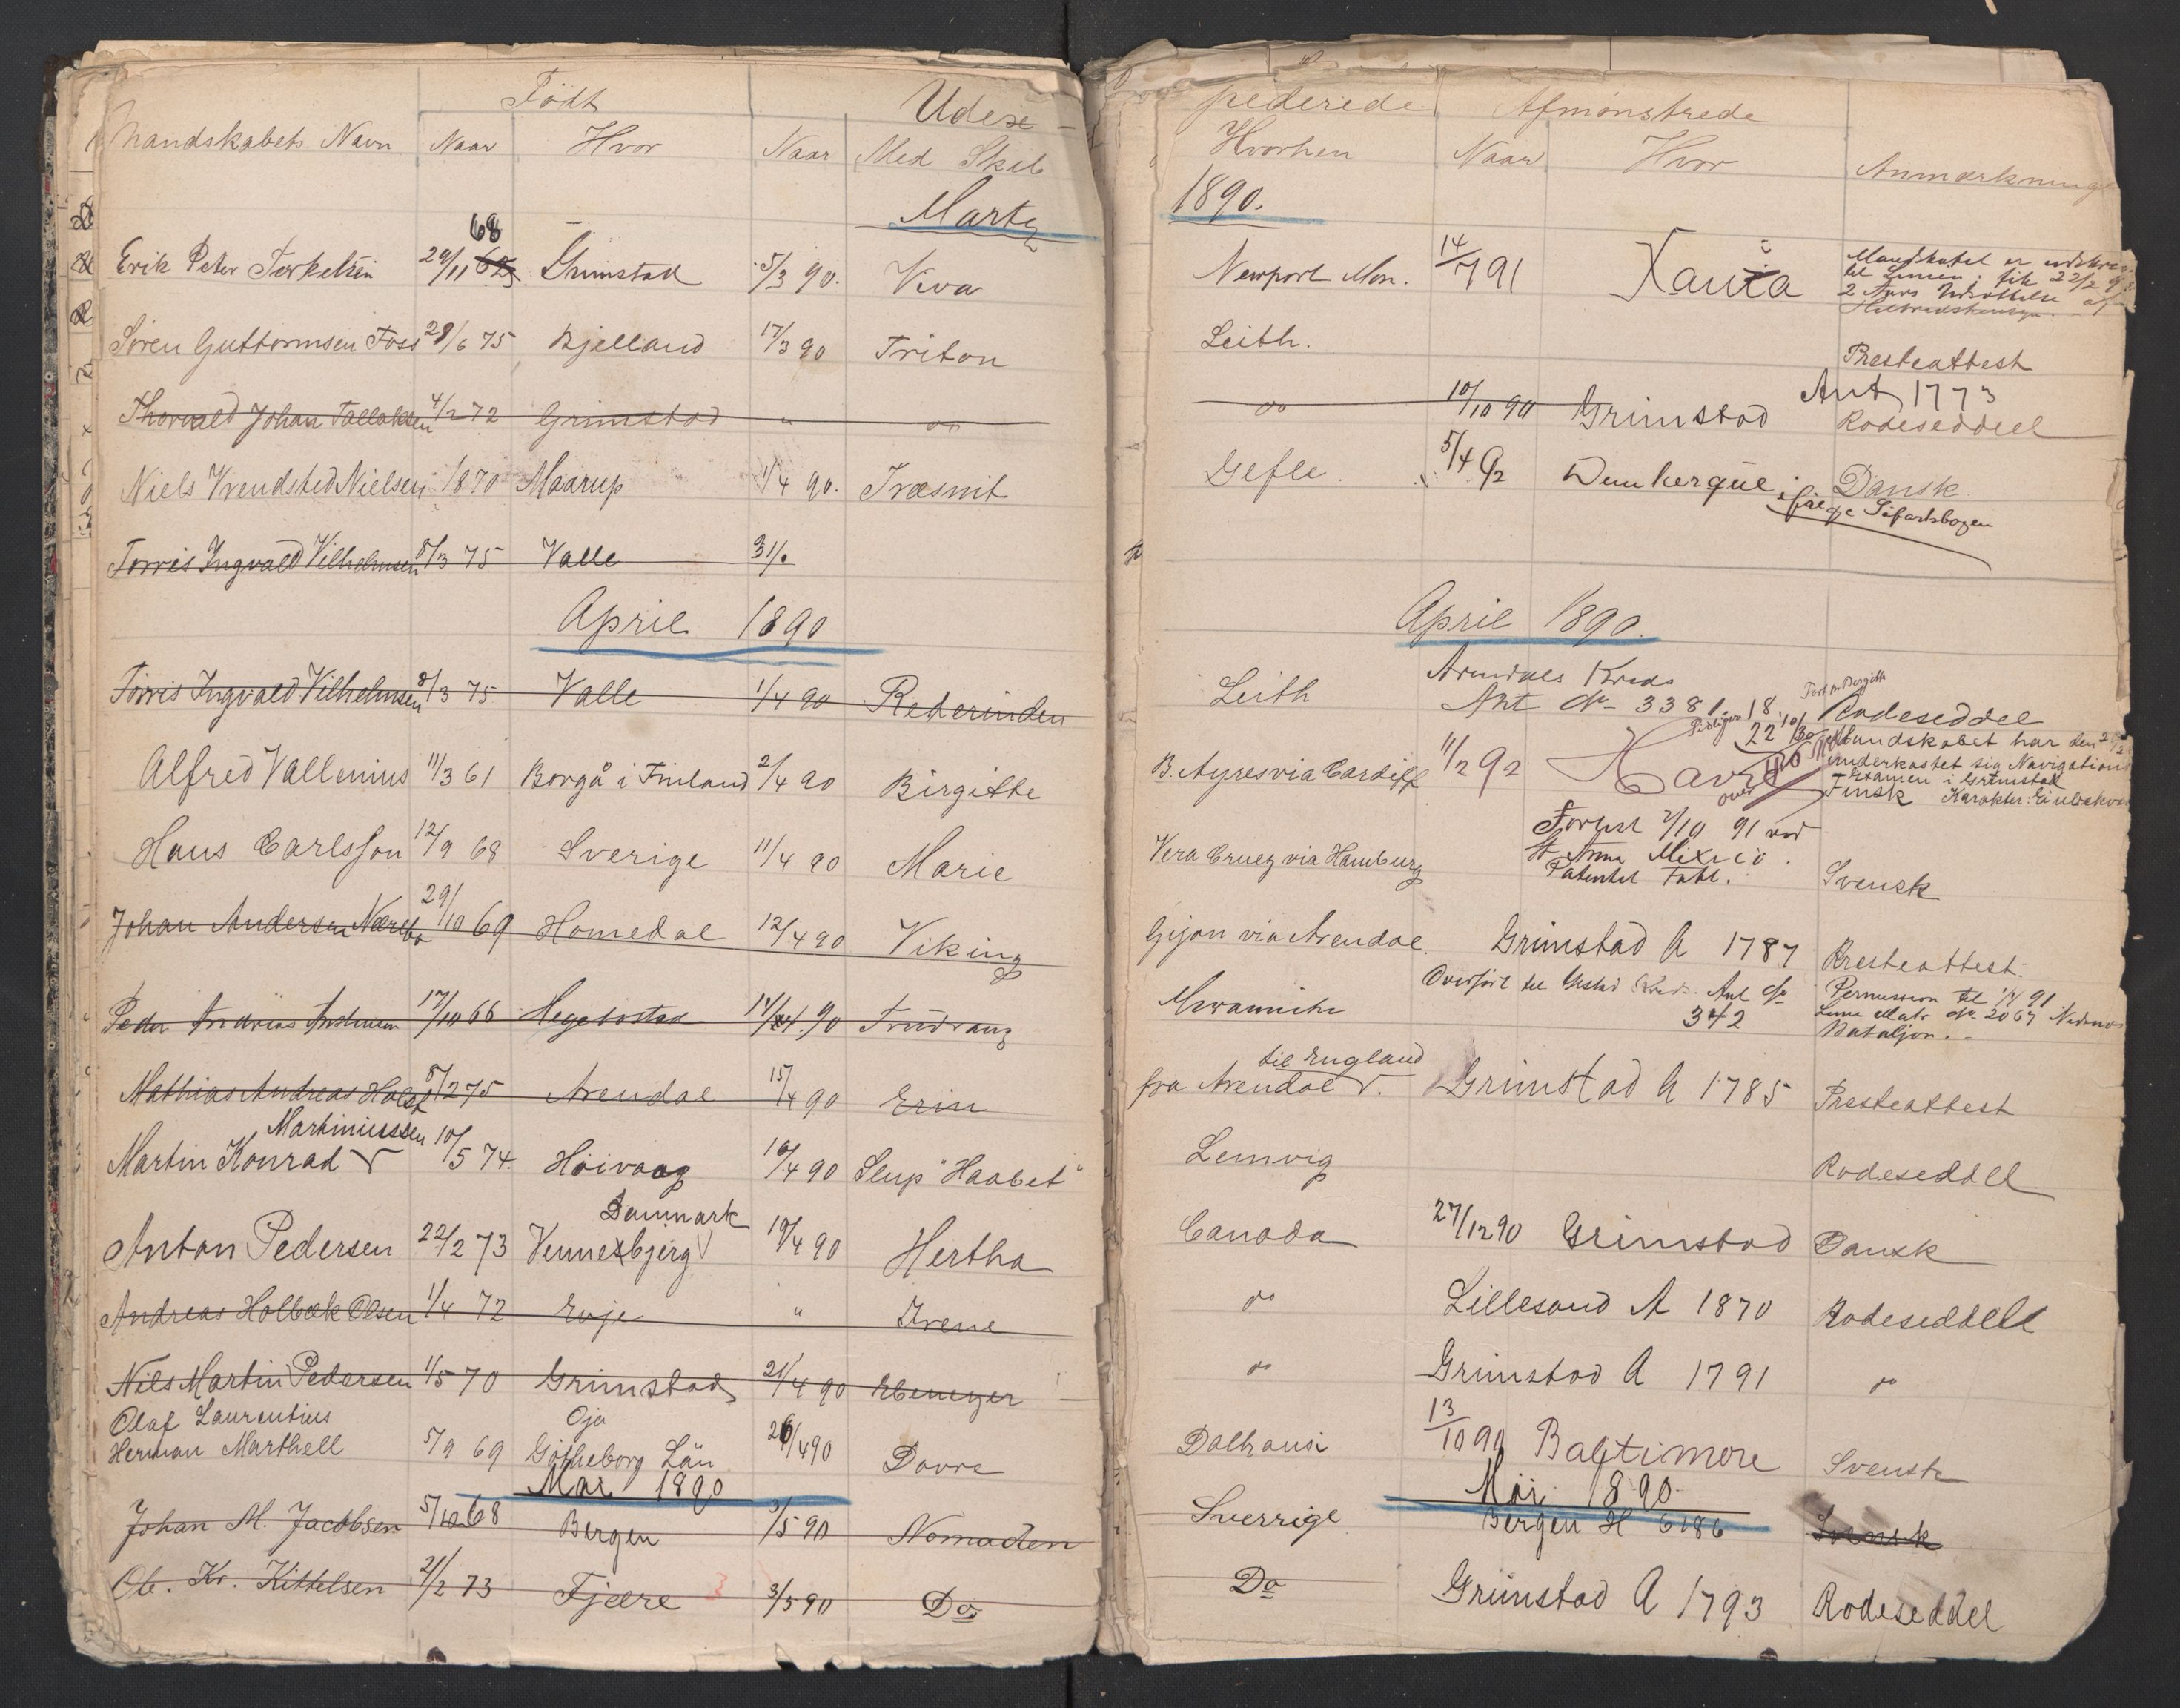 Født
Udex-
Mandskabets Navn Naar Hvor Naar Med Skib
Marts
Erik Peter Terkelsen 29/11 68 Grimstad 5/3 90. Viva
Søren Guttormsen Foss 28/6 75 Bjelland 17/3 90 Triton
Thorvald Johan Tallaksen 4/2 72 Grimstad " do
Niels Vrendsted Nielsen 1870 Maarup 1/4 90. Træsnit
Torris Ingvald Vilhelmsen 8/3 75 Valle 31/.
April 1890
Torris Ingvald Vilhelmsen 8/3 75 Valle 1/4 90 Rederinden
Alfred Vallenius 11/3 61 Borgå i Finland 2/4 90 Birgitte
Hans Carlsson 12/9 68 Sverige 11/4 90 Marie
Johan Andersen 29/10 69 Homedal 12/4 90 Viking
Peder Andreas Andersen 17/10 66 Hegebostad 14/4 90
Mathias Andreas Holst 8/2 75 Arendal 15/4 90 Erin
Martiniussen
Martin Konrad 10/5 74. Høivaag 16/4 90 Slup "Haabet"
Danmark
Anton Pedersen 22/2 73 Vennebjerg 19/4 90 Hertha
Andreas Holbæk Olsen 1/4 72 Evje " Irene
Nils Martin Pedersen 1/5 70 Grimstad 21/4 90 Ebenezer
Olaf Laurentius Oja
Herman Marthell 5/9 69 Götheborg Län 26/4 90 Dovre
Mai 1890
Johan M. Jacobsen 5/10 68 Bergen 3/5 90 Nomaden
Ole. Kr. Kittelsen 21/2 73 Fjære 3/5 90 Do
pederede Afmønstrede
Hvorhen Naar Hvor Anmærkninger
1890.
Newport Mon. 14/7 91 Xauxa Mandskabet er udskrev
til Linien; fik 22/2 9
2 Aars Udsættelse af
Leith. Presteattest
Ant 1773
do 10/10 90 Grimstad Rodeseddel
Gefle. 5/4 92 Dunkerque ifølge Søfartsbogen Dansk
April 1890.
Arendals Kreds
Leith Ant No 3381. Rodeseddel
B. Ayres via Cardiff 11/2 92 Havre Mandskabet har den
underkastet sig Navigations
Examen i Grimstad
Finsk Karakter:
Forlist 7/10 91 ved
Vera Cruz via Hamburg St Anna Mexico.
Patentet tabt. Svensk
Gijon via Arendal. Grimstad A 1787 Presteattest.
Overført til Kreds. Ant No 342 Permission til 91
Linie Matr No 2067
Bataljon.
til England
fra Arendal Grimstad A 1785 Presteattest
Lemvig Rodeseddel
Canada 27/12 90 Grimstad Dansk
do Lillesand A 1870 Rodeseddel
do Grimstad A 1791 do
Dalhousi 13/10 90 Baltimore Svensk
Mai 1890
Sverrige Bergen H 6186 Svensk
Do Grimstad A 1793 Rodeseddel